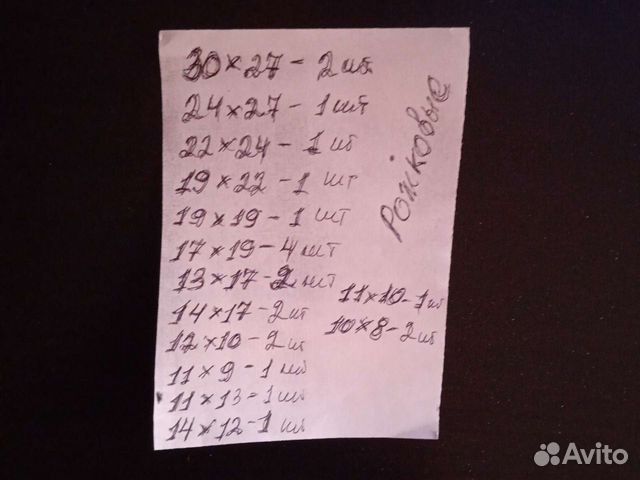 30×27 - 2 шт
24×27 - 1 шт
22×24 - 1 шт
19×22 - 1 шт
19×19 - 1 шт
17×19 - 4 шт
13×17 - 2 шт
14×17 - 2 шт
12×10 - 2 шт
11×9 - 1 шт
11×13 - 1 шт
14×12 - 1 шт
Рожковые
11×10 - 1 шт
10×8 - 2 шт
Avito